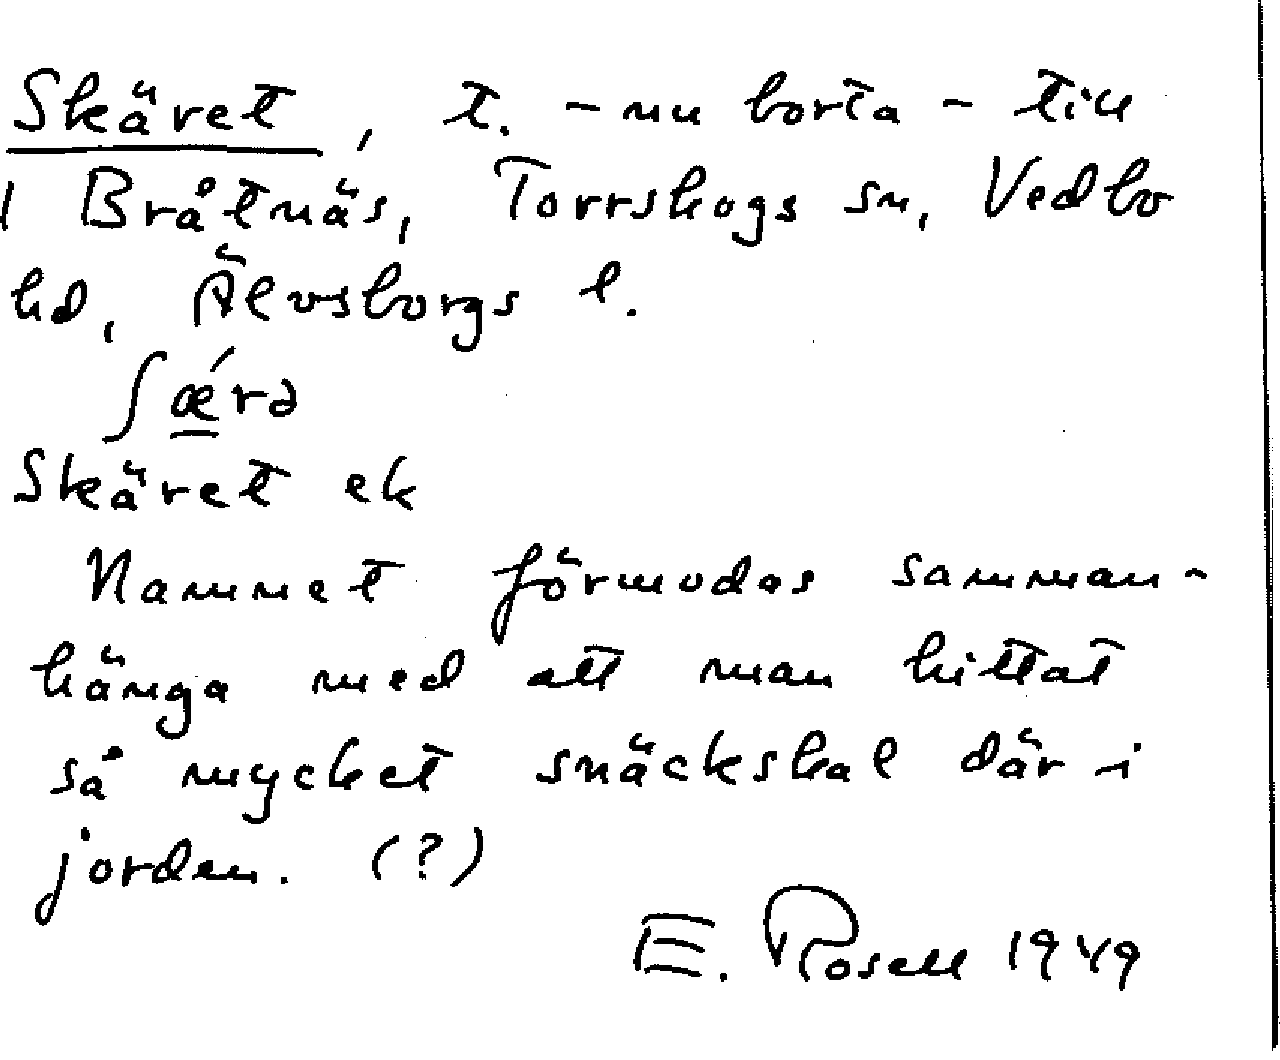 Skäret, t. - nu borta - till
1 Bråtnäs, Torrskogs sn, Vedbo
hd, Älvsborgs l.
ʃǽrə
Skäret ek
Namnet förmodas samman-
hänga med att man hittat
så mycket snäckskal där i
jorden. (?)
E. Rosell 1949